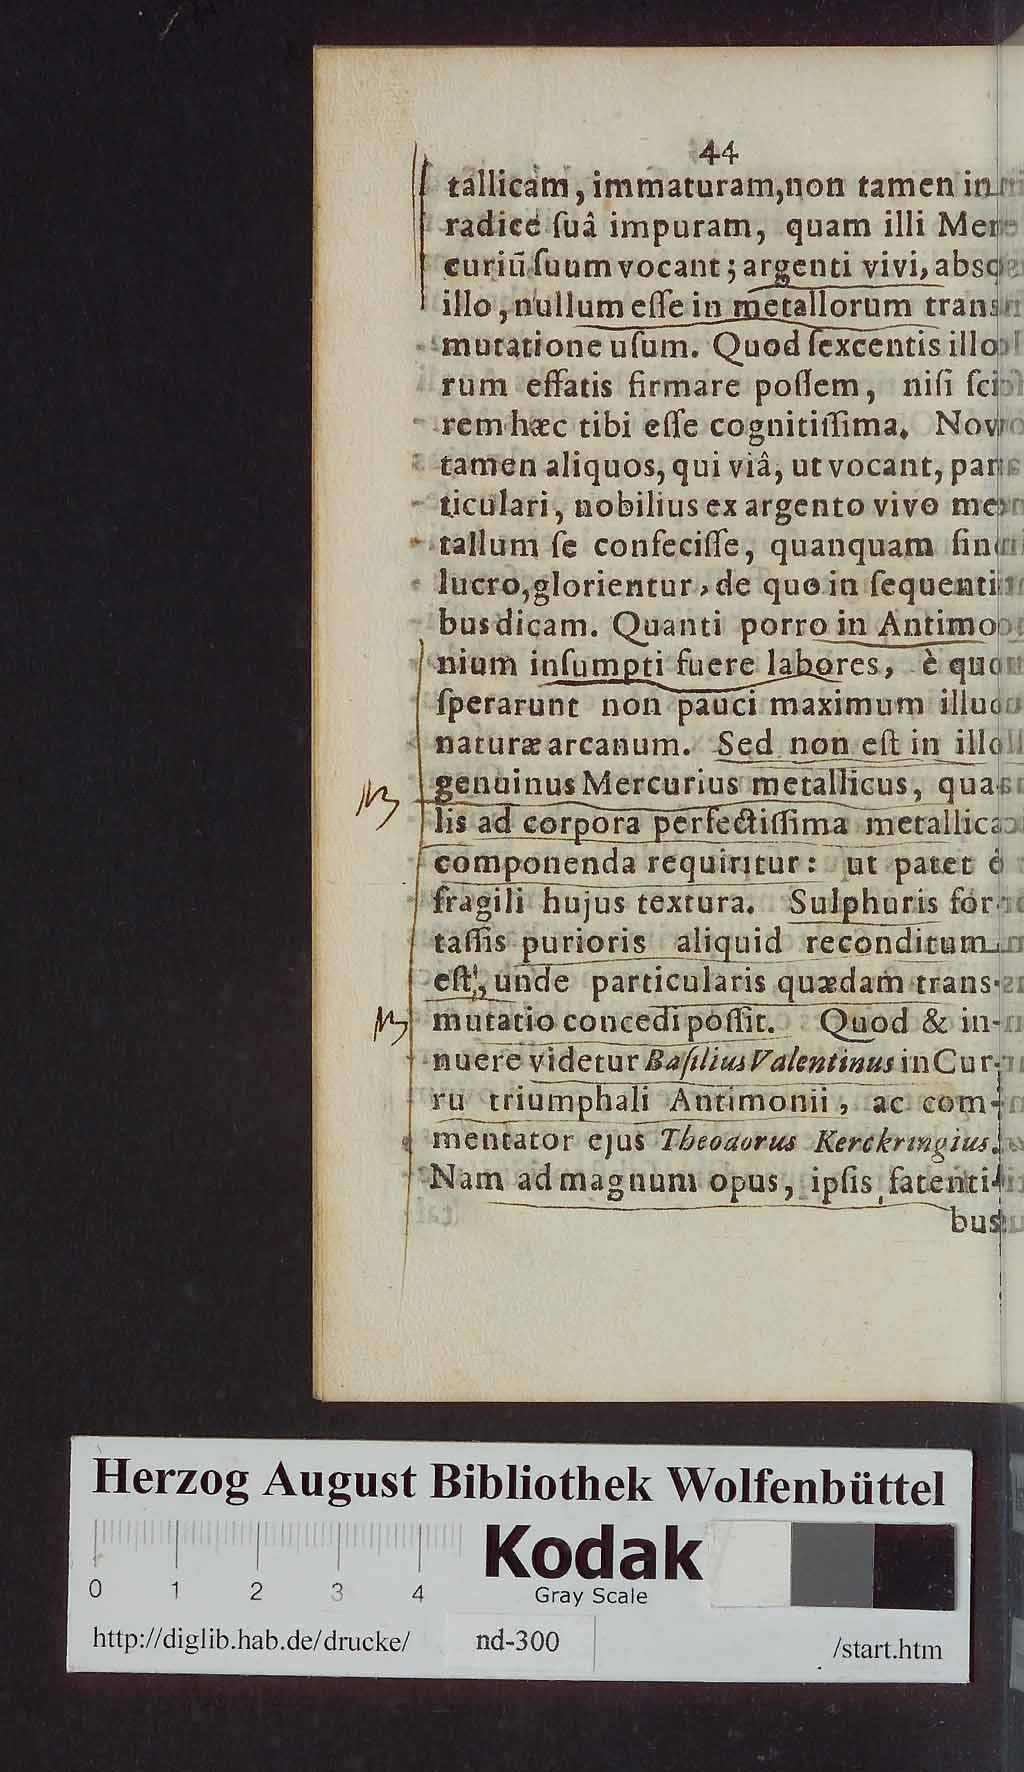 44
tallicam, immaturam, non tamen in
radice ſuâ impuram, quam illi Mer
curiū ſuum vocant; argenti vivi, absq
illo, nullum eſſe in metallorum trans
mutatione uſum. Quod ſexcentis illo
rum effatis firmare poſſem, niſi ſci
rem hæc tibi eſſe cognitiſſima. Novi
tamen aliquos, qui viâ, ut vocant, par
ticulari, nobilius ex argento vivo me
tallum ſe confeciſſe, quanquam ſine
lucro, glorientur, de quo in ſequenti
bus dicam. Quanti porro in Antimo
nium inſumpti fuere labores, è quo
ſperarunt non pauci maximum illud
naturæ arcanum. Sed non eſt in illo
genuinus Mercurius metallicus, qua
lis ad corpora perfectiſſima metallica
componenda requiritur: ut patet è
fragili hujus textura. Sulphuris for
taſſis purioris aliquid reconditum
eſt, unde particularis quædam trans-
mutatio concedi poſſit. Quod & in-
nuere videtur Baſilius Valentinus in Cur
ru triumphali Antimonii, ac com-
mentator ejus Theodorus Kerckringius.
Nam ad magnum opus, ipſis fatenti-
bus
NB
NB
Herzog August Bibliothek Wolfenbüttel
Kodak
Gray Scale
0 1 2 3 4
http://diglib.hab.de/drucke/ nd-300 /start.htm